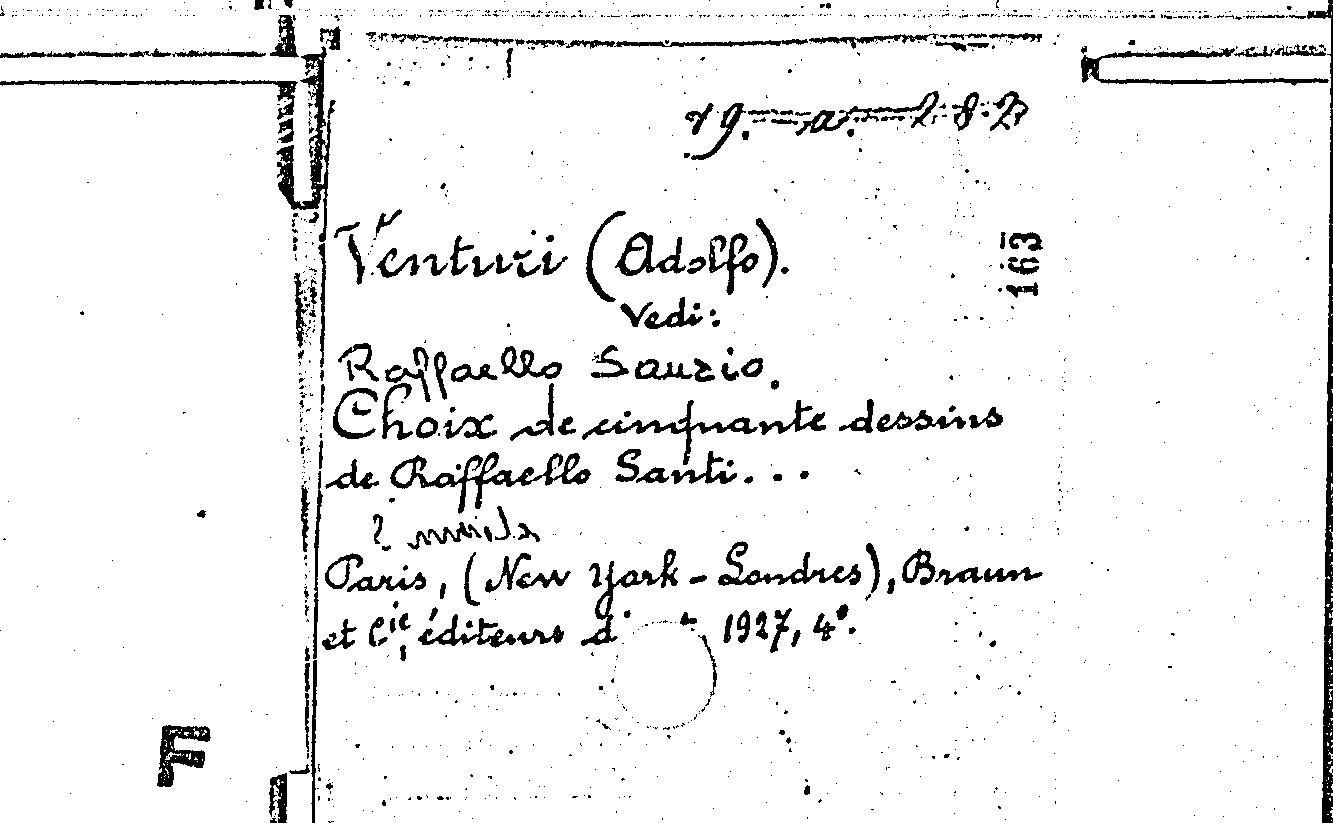 19. a. 2. 8. 27
Venturi (Adolfo).
163
Vedi:
Raffaello Sanzio.
Choix de cinquante dessins
de Raffaello Santi...
Paris, (New York - Londres), Braun
et Cie, éditeurs 1927, 4°.
F